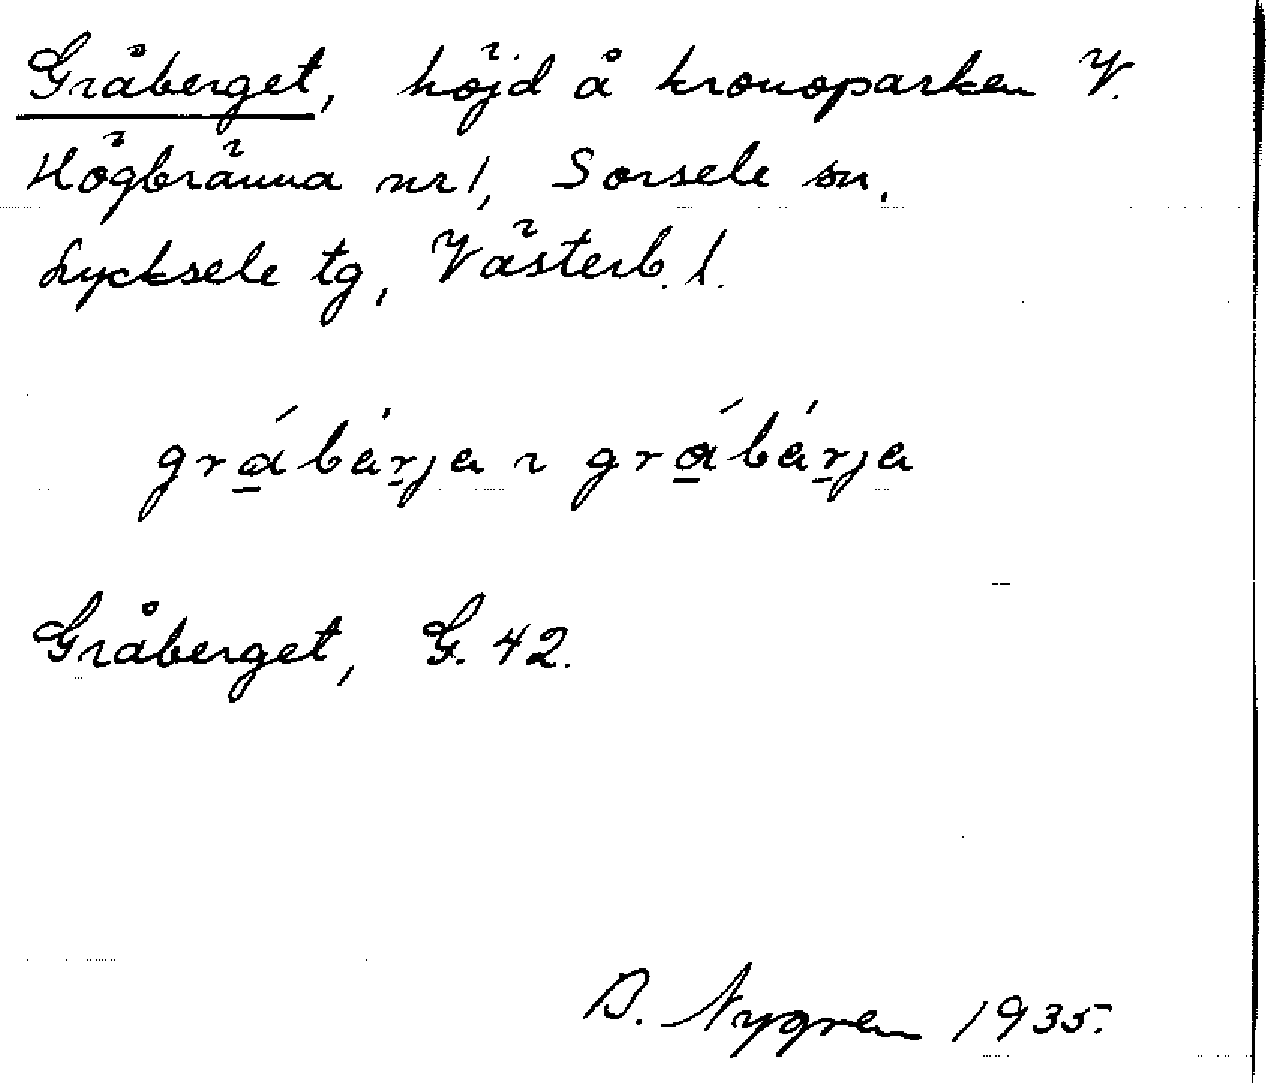 Gråberget, höjd å kronoparken V.
Högbränna nr 1, Sorsele sn.
Lycksele tg, Västerb. l.
grábárja ~ grábárja
Gråberget, G. 42.
D. Nygren 1935.